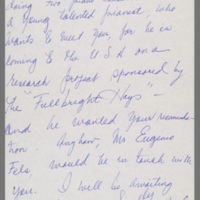 doing two
a young talented pianist, who
wants to meet you, for he is
coming to the U.S.A on a
research project sponsored by
the "Fullbright Hays" -
and he wanted your
tion. Anyhow, Mr Eugenio
Fels, would be in touch with
you. I will be awaiting